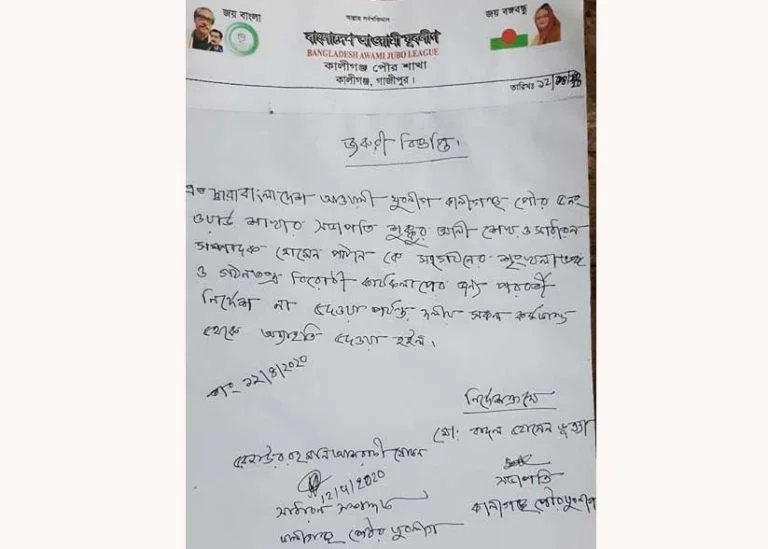 আল্লাহ সর্বশক্তিমান
জয় বাংলা
জয় বঙ্গবন্ধু
বাংলাদেশ আওয়ামী যুবলীগ
BANGLADESH AWAMI JUBO LEAGUE
কালীগঞ্জ পৌর শাখা
কালীগঞ্জ, গাজীপুর।
তারিখঃ ১২/
জরুরী বিজ্ঞপ্তি।
এত দ্বারা বাংলাদেশ আওয়ামী যুবলীগ কালীগঞ্জ পৌর ৫নং
ওয়ার্ড শাখার সভাপতি শুক্কুর আলী শেখ ও সাধারন
সম্পাদক হোসেন পাঠান কে সংগঠনের শৃংখলা ভঙ্গ
ও গঠনতন্ত্র বিরোধী কার্যকলাপের জন্য পরবর্তী
নির্দেশ না দেওয়া পর্যন্ত দলীয় সকল কর্মকান্ড
থেকে অব্যাহতি দেওয়া হইল।
তাং ১২/৪/২০২০
নির্দেশক্রমে
মো: বাদল হোসেন ভূইয়া
রেজাউর রহমান আশরাফী খোকন
12/4/2020
সভাপতি
সাধারন সম্পাদক
কালীগঞ্জ পৌর যুবলীগ
কালীগঞ্জ পৌর যুবলীগ